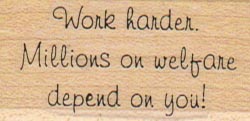 Work harder.
Millions on welfare
depend on you!